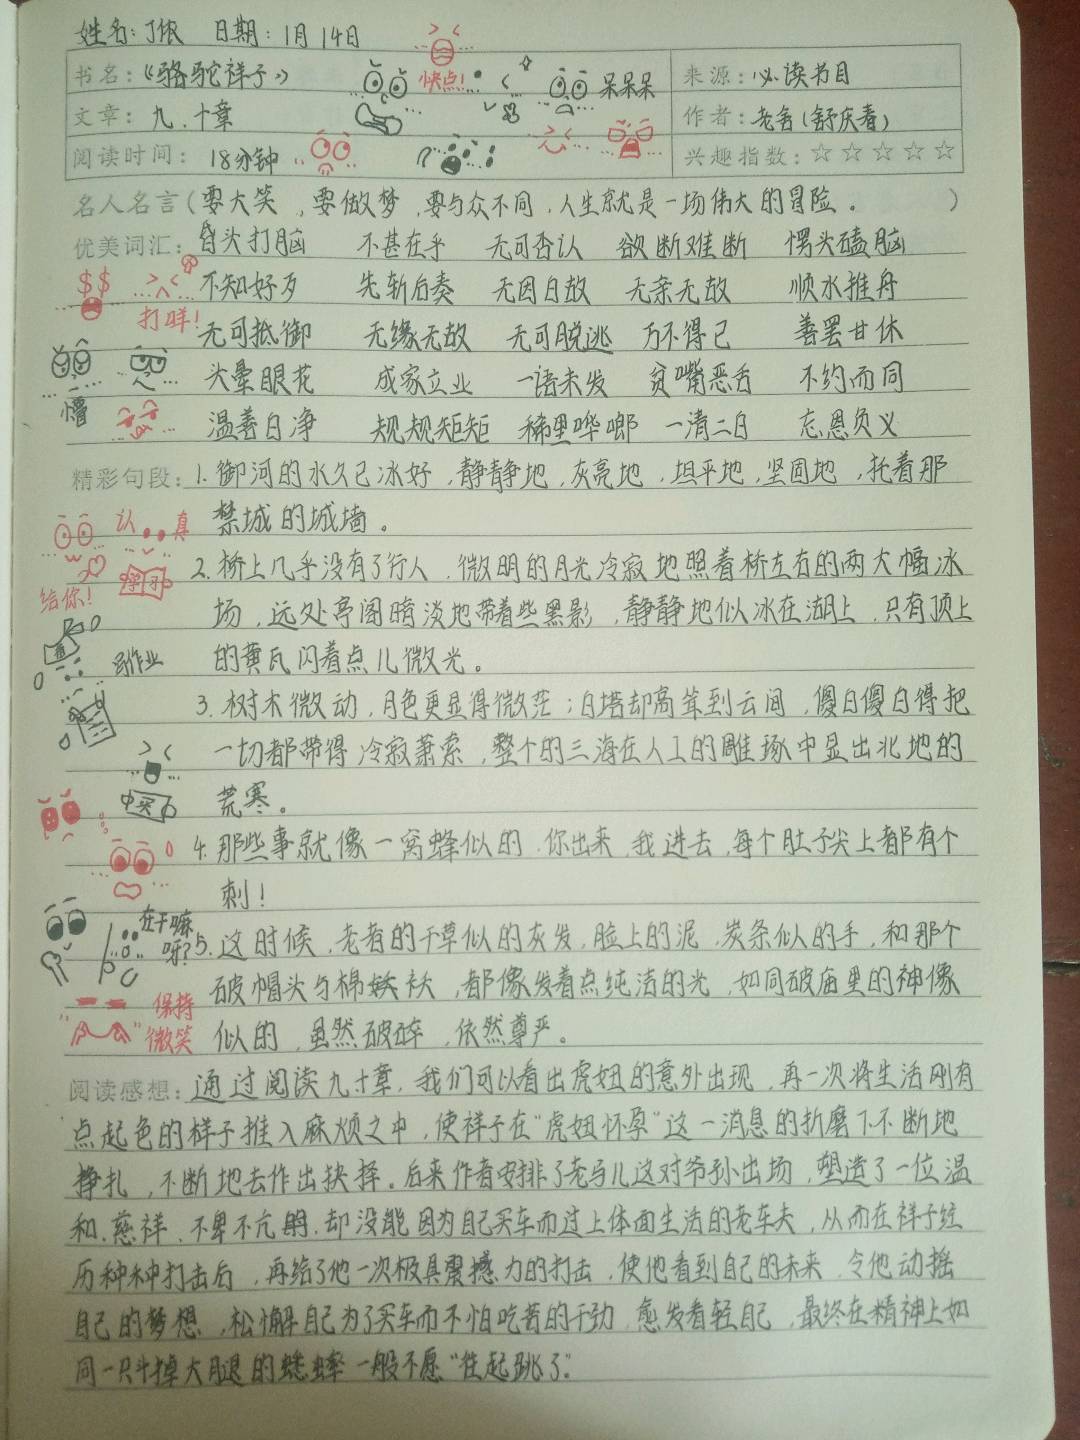 姓名:丁侬 日期:1月14日
书名:《骆驼祥子》 快点! 呆呆呆 来源:必读书目
文章:九.十章 作者:老舍(舒庆春)
阅读时间:18分钟 兴趣指数:☆☆☆☆☆
名人名言(要大笑,要做梦,要与众不同,人生就是一场伟大的冒险。)
优美词汇:昏头打脑 不甚在乎 无可否认 欲断难断 愣头磕脑
不知好歹 先斩后奏 无因白故 无亲无故 顺水推舟
打咩!
无可抵御 无缘无故 无可脱逃 万不得已 善罢甘休
头晕眼花 成家立业 一语未发 贫嘴恶舌 不约而同
懵
温善白净 规规矩矩 稀里哗啷 一清二白 忘恩负义
精彩句段:1.御河的水久已冰好,静静地,灰亮地,坦平地,坚固地,托着那
认真 禁城的城墙。
学习
2.桥上几乎没有了行人,微明的月光冷寂地照着桥左右的两大幅冰
给你!
场,远处亭阁暗淡地带着些黑影,静静地似冰在湖上,只有顶上
写作业 的黄瓦闪着点儿微光。
3.树木微动,月色更显得微茫;白塔却高耸到云间,傻白傻白得把
一切都带得冷寂萧索,整个的三海在人工的雕琢中显出北地的
荒寒。
4.那些事就像一窝蜂似的,你出来,我进去,每个肚子尖上都有个
刺!
在干嘛呀?
5.这时候,老者的干草似的灰发,脸上的泥,炭条似的手,和那个
破帽头与棉袄,都像发着点纯洁的光,如同破庙里的神像
保持微笑
似的,虽然破碎,依然尊严。
阅读感想:通过阅读九十章,我们可以看出虎妞的意外出现,再一次将生活刚有
点起色的样子推入麻烦之中,使祥子在“虎妞怀孕”这一消息的折磨下不断地
挣扎,不断地去作出抉择。后来作者安排了老马儿这对爷孙出场,塑造了一位温
和、慈祥、不卑不亢的,却没能因为自己买车而过上体面生活的老车夫,从而在祥子经
历种种打击后,再给了他一次极具震撼力的打击,使他看到自己的未来,令他动摇
自己的梦想,松懈自己为了买车而不怕吃苦的干劲,愈发看轻自己,最终在精神上如
同一只掉大腿的蟋蟀一般不愿“往起跳了”